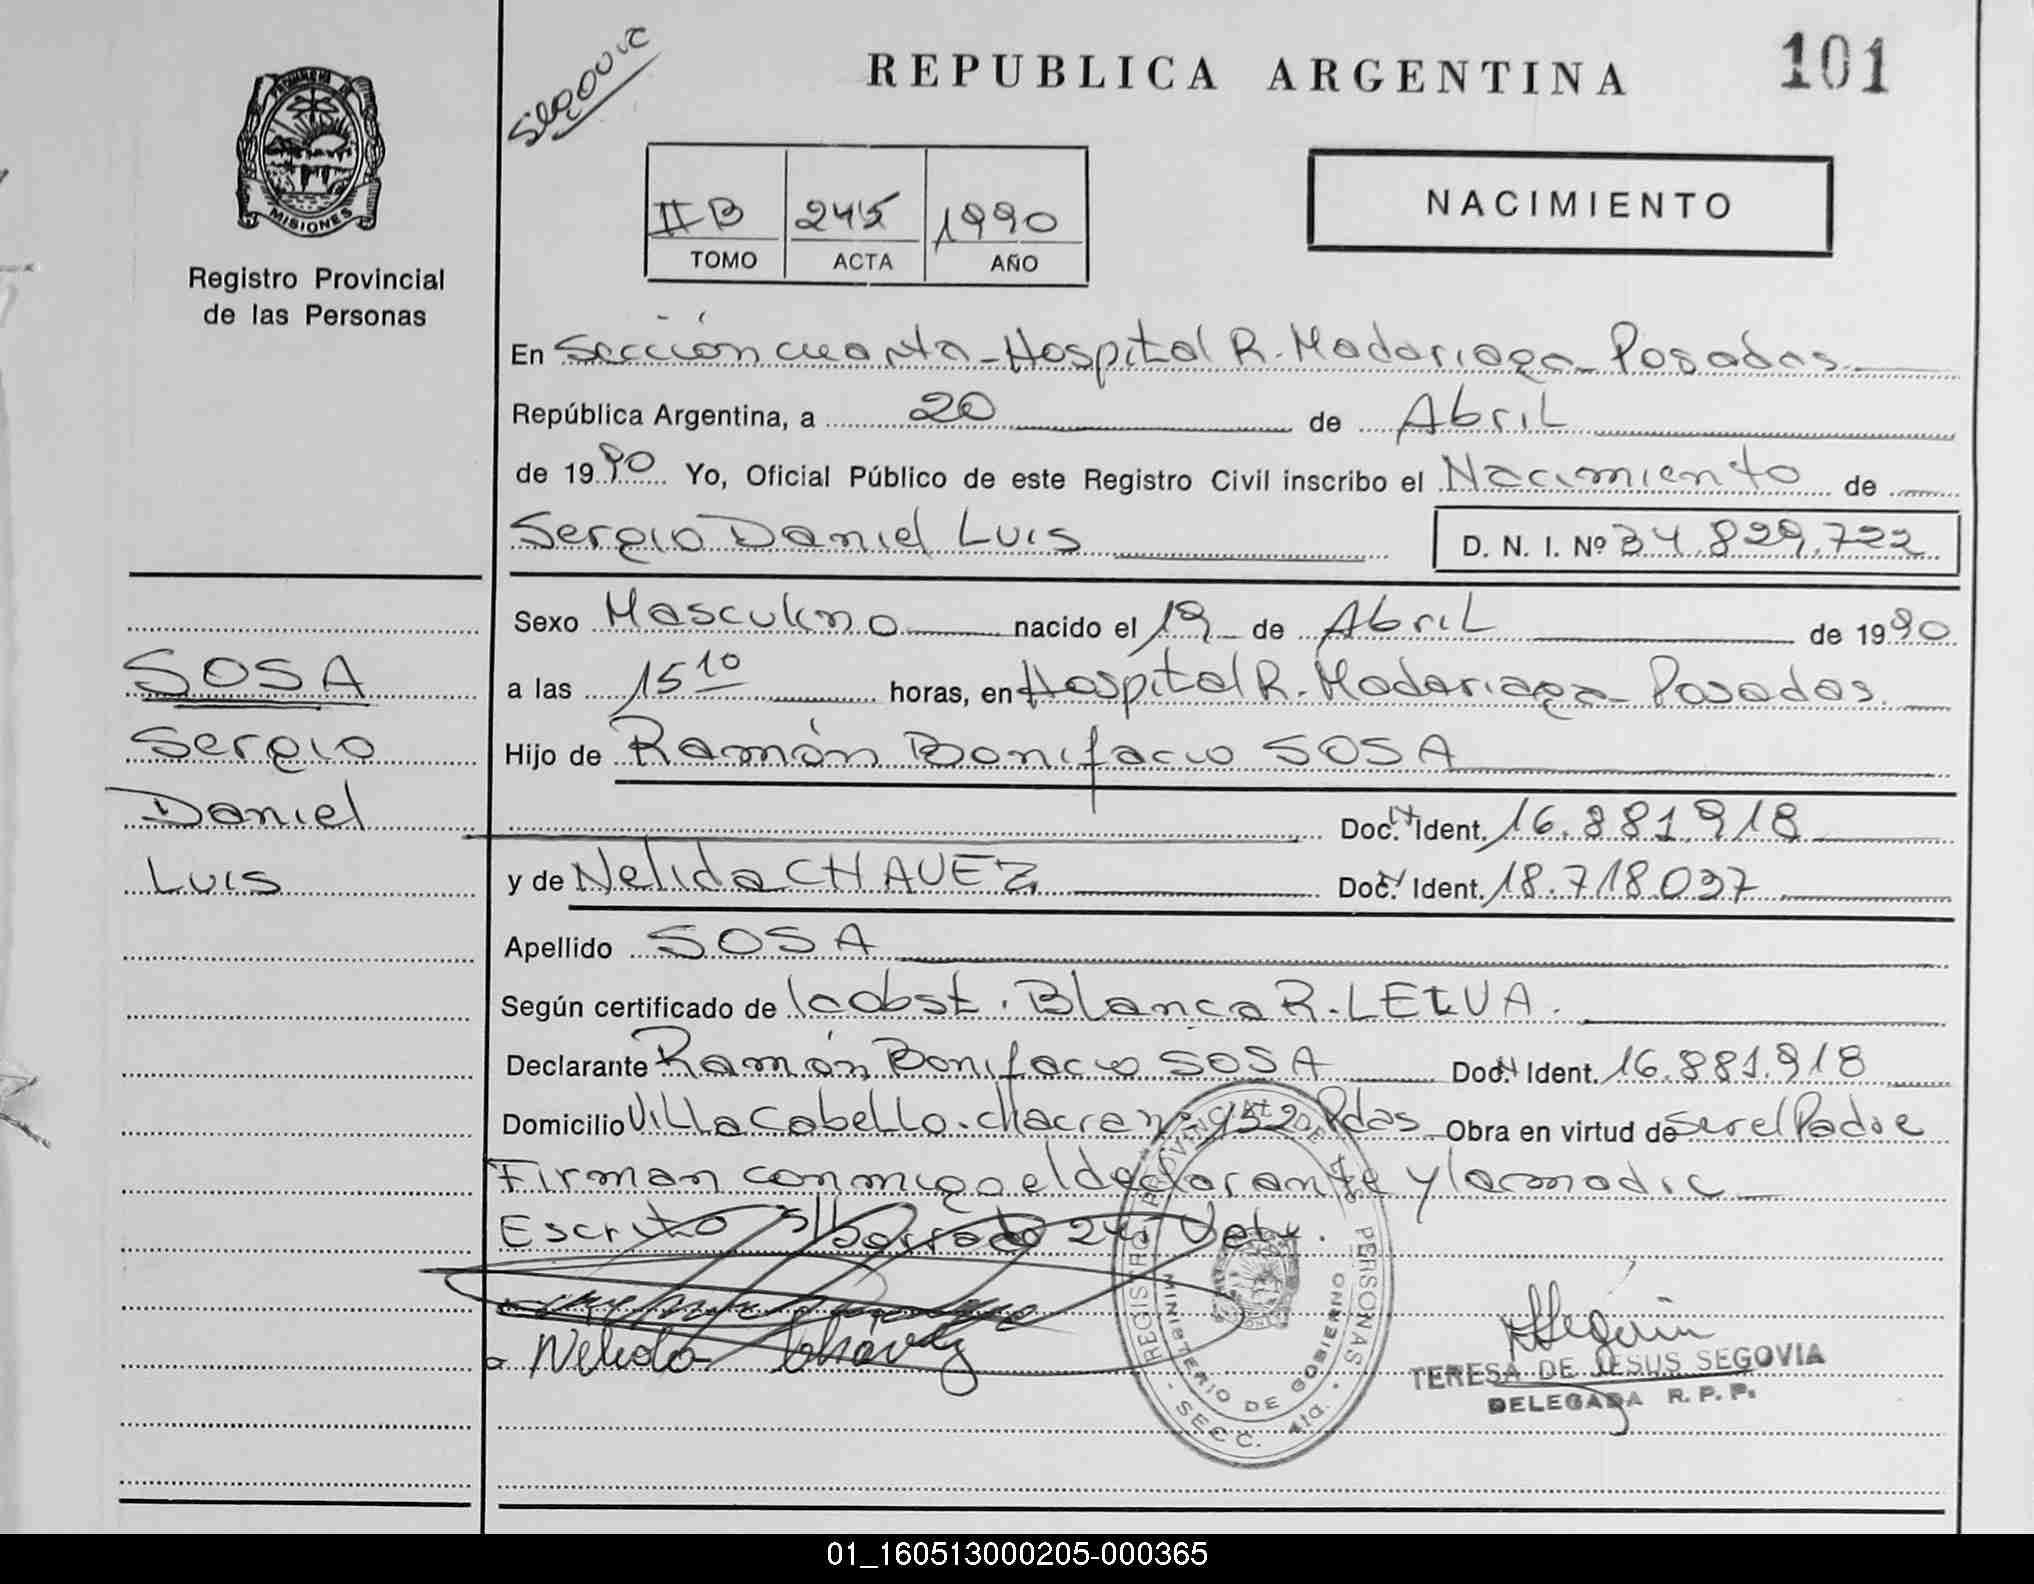 Segovia
REPUBLICA ARGENTINA
101
MISIONES
Registro Provincial
de las Personas
II B 245 1990
TOMO ACTA AÑO
NACIMIENTO
En Sección cuarta - Hospital R. Madariaga - Posadas
República Argentina, a 20 de Abril
de 1990 Yo, Oficial Público de este Registro Civil inscribo el Nacimiento de
Sergio Daniel Luis D. N. I. Nº 34.829.722
Sexo Masculino nacido el 19 de Abril de 1990
SOSA
a las 15 10 horas, en Hospital R. Madariaga - Posadas
Sergio
Hijo de Ramón Bonifacio SOSA
Daniel
Doc. N Ident. 16.881.918
Luis
y de Nelida CHAVEZ Doc. N Ident. 18.718.037
Apellido SOSA
Según certificado de lcobst. Blanca R. LEIVA.
Declarante Ramón Bonifacio SOSA Doc. N Ident. 16.881.918
Domicilio Villa Cabello. Chacra nº 152 Pdas Obra en virtud de ser el Padre
Firman conmigo el declarante y la madre
Escrito s/borrado 24: Vale.
Nelida Chávez
REGISTRO PROVINCIAL DE PERSONAS
MINISTERIO DE GOBIERNO
- SECC. 4ta. -
TERESA DE JESUS SEGOVIA
DELEGADA R. P. P.
01_160513000205-000365